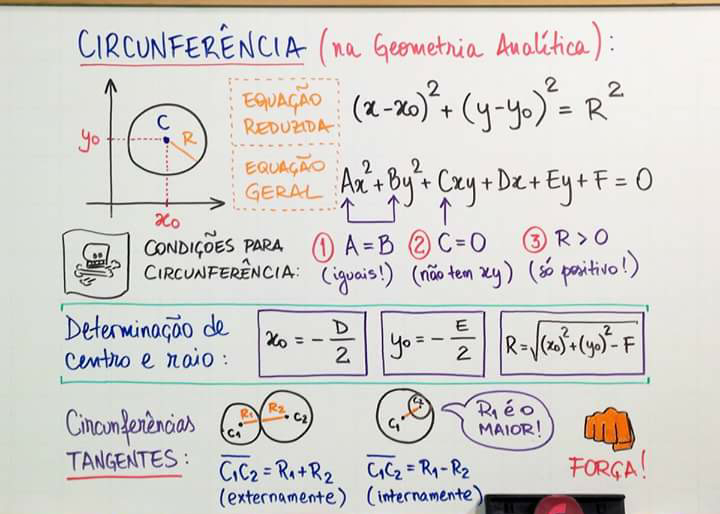 CIRCUNFERÊNCIA (na Geometria Analítica):
EQUAÇÃO
REDUZIDA
(x-x₀)² + (y-y₀)² = R²
y₀
C
R
x₀
EQUAÇÃO
GERAL
Ax² + By² + Cxy + Dx + Ey + F = 0
CONDIÇÕES PARA
CIRCUNFERÊNCIA:
① A = B
(iguais!)
② C = 0
(não tem xy)
③ R > 0
(só positivo!)
Determinação de
centro e raio:
x₀ = - D/2
y₀ = - E/2
R = √((x₀)² + (y₀)² - F)
Circunferências
TANGENTES:
R₁ R₂
C₁ C₂
C̅₁C̅₂ = R₁ + R₂
(externamente)
C₂
C₁
R₁ é o
MAIOR!
C̅₁C̅₂ = R₁ - R₂
(internamente)
FORÇA!